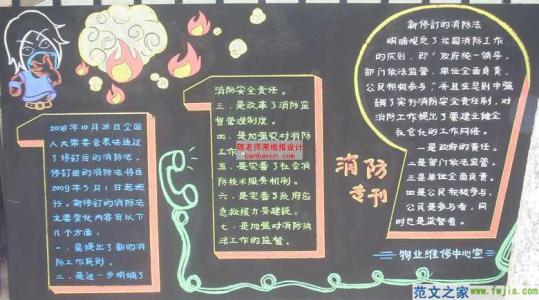 2008年10月28日全国
人大常委会表决通过
了修订后的消防法。
修订后的消防法将自
2009年5月1日起施
行。新修订的消防法
主要变化内容有以下
几个方面。
一.是提出了新的消
防工作原则。
二.是进一步明确了
消防安全责任。
三.是改革了消防监
督管理制度。
四.是加强农村消防
工作
五.是完善了社会消
防技术服务机制。
六.是完善了政府应
急救援力量建设。
七.是加强对消防执
法工作的监督。
陈老师黑板报设计
banbaocn.com
消防
专刊
新修订的消防法
明确规定了我国消防工作
的原则，即“政府统一领导，
部门依法监管，单位全面负责，
公民积极参与”并且在总则中强
调了实行消防安全责任制，对
消防工作提出了要建立健全
社会化的工作网络。
一是政府的责任。
二是部门依法监管。
三是单位全面负责。
四是公民积极参与，
公民是参与者，同
时也是监督者。
——物业维修中心宣
范文之家
www.fwjia.com